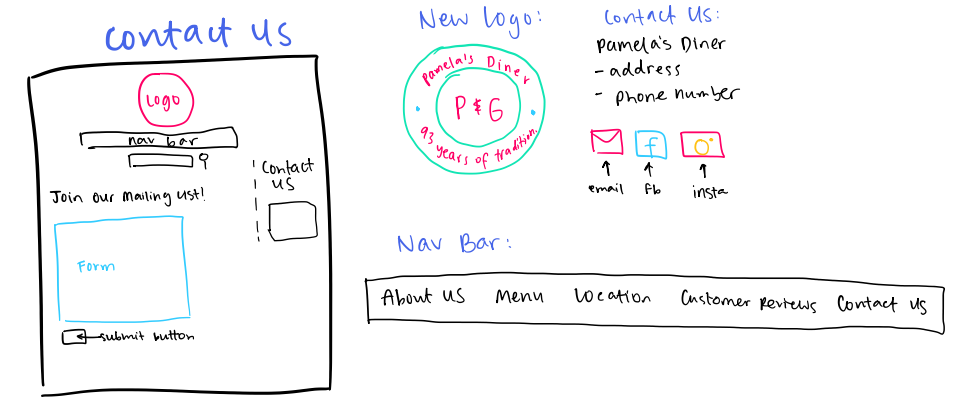 Contact Us
Logo
nav bar
Contact
us
Join our mailing list!
Form
submit button
New Logo:
Pamela's Diner
P & G
93 years of tradition.
Contact Us:
Pamela's Diner
- address
- phone number
f
email
fb
insta
Nav Bar:
About us Menu Location Customer Reviews Contact us